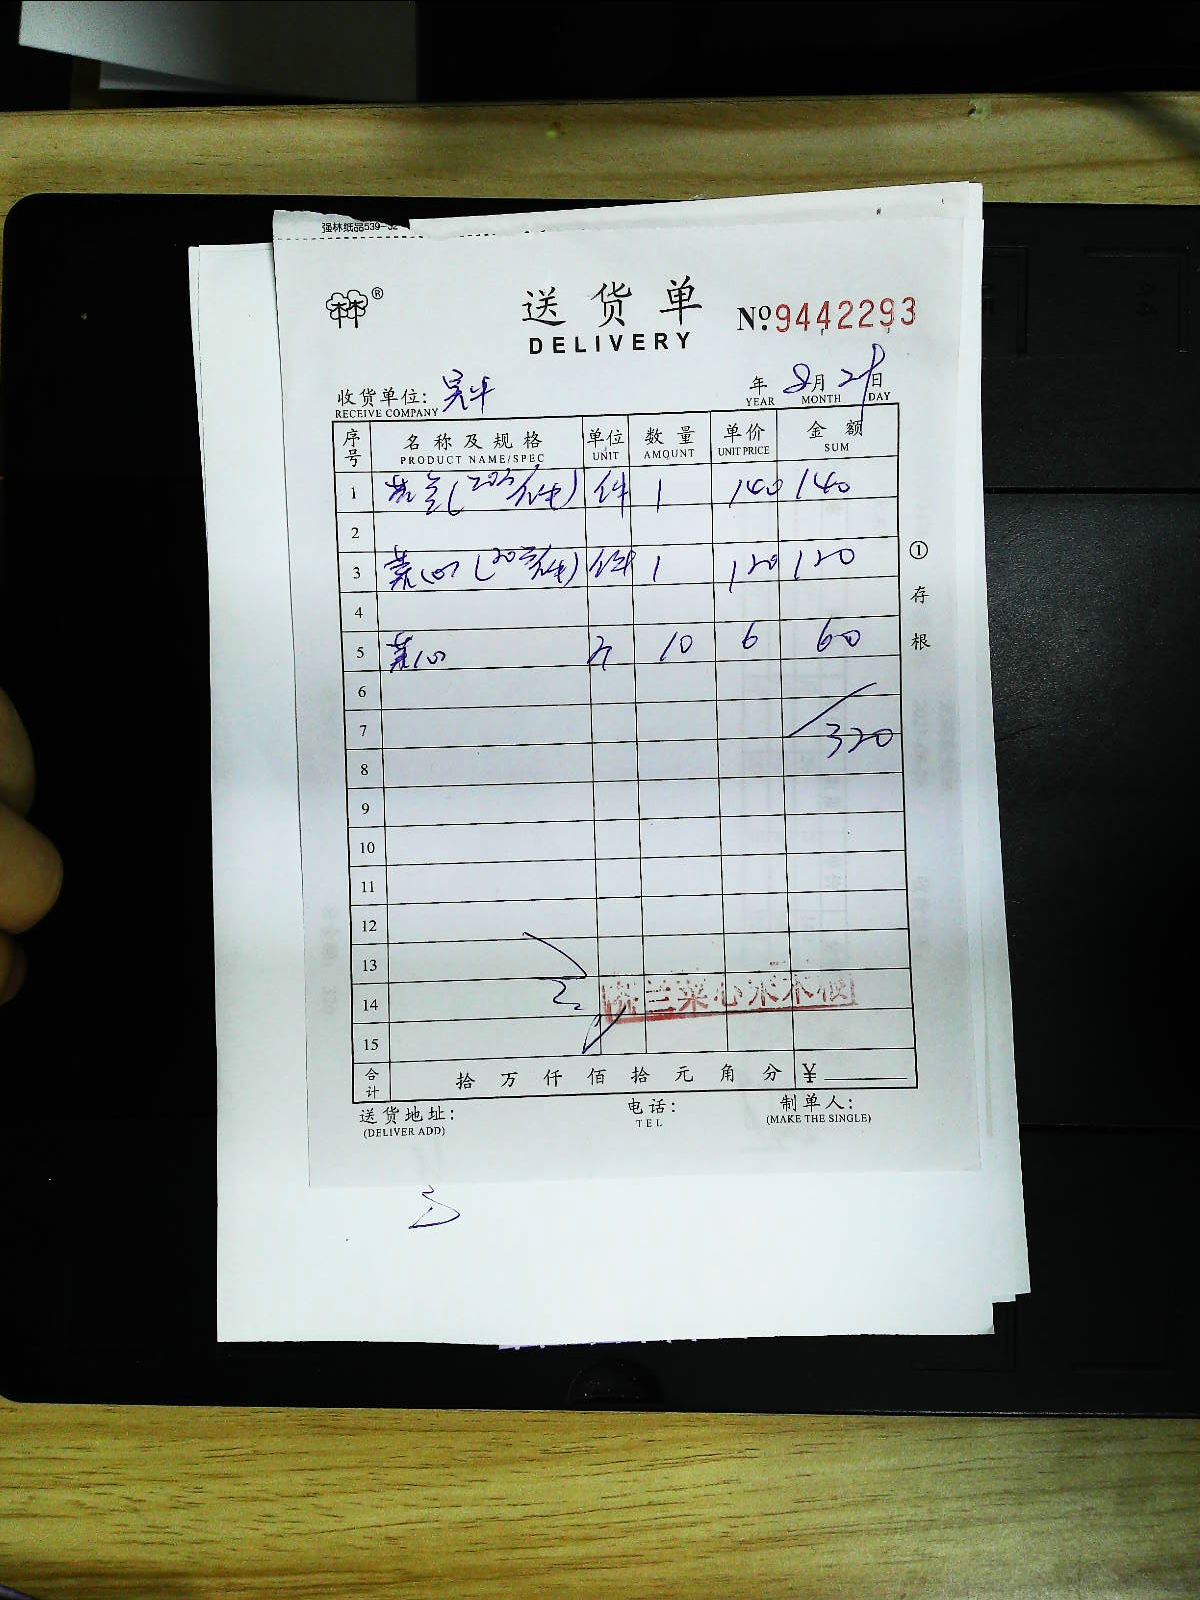 强林纸品539-32
®
送货单
DELIVERY
№9442293
收货单位:
RECEIVE COMPANY
年 8月 21日
YEAR MONTH DAY
序号 名称及规格 单位 数量 单价 金额
PRODUCT NAME/SPEC UNIT AMOUNT UNIT PRICE SUM
1 芥兰(20斤/件) 件 1 140 140
2
3 菜心(20斤/件) 件 1 120 120
4
5 菜心 斤 10 6 60
6
7 320
8
9
10
11
12
13
14 芥兰菜心
15
合计 拾 万 仟 佰 拾 元 角 分 ¥
送货地址: 电话: 制单人:
(DELIVER ADD) TEL (MAKE THE SINGLE)
① 存根